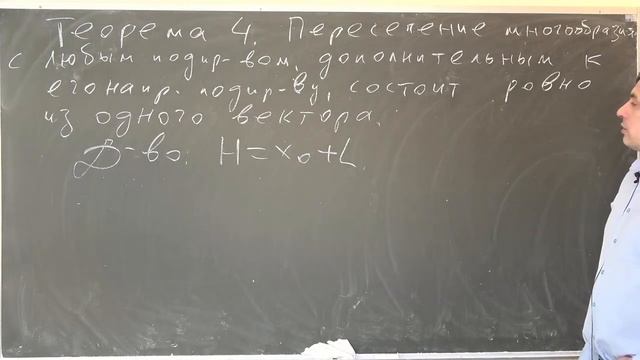 Теорема 4. Пересечение многообразия
с любым подпр-вом, дополнительным к
его напр. подпр-ву, состоит ровно
из одного вектора.
Д-во. H = x₀ + L.